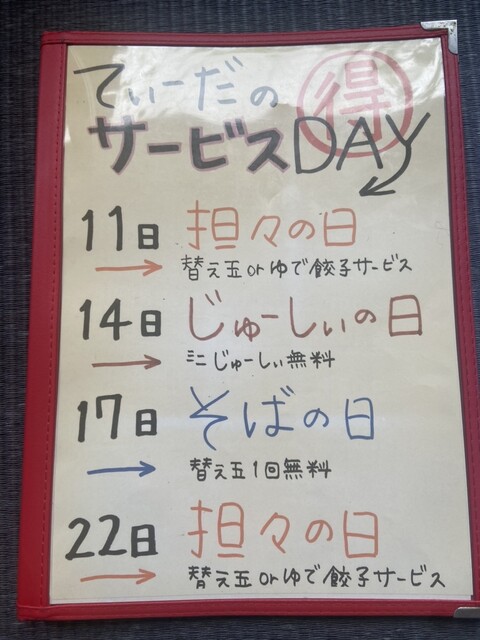 てぃーだの
得
サービスDAY
11日 担々の日
替え玉orゆで餃子サービス
14日 じゅーしぃの日
ミニじゅーしぃ無料
17日 そばの日
替え玉1回無料
22日 担々の日
替え玉orゆで餃子サービス